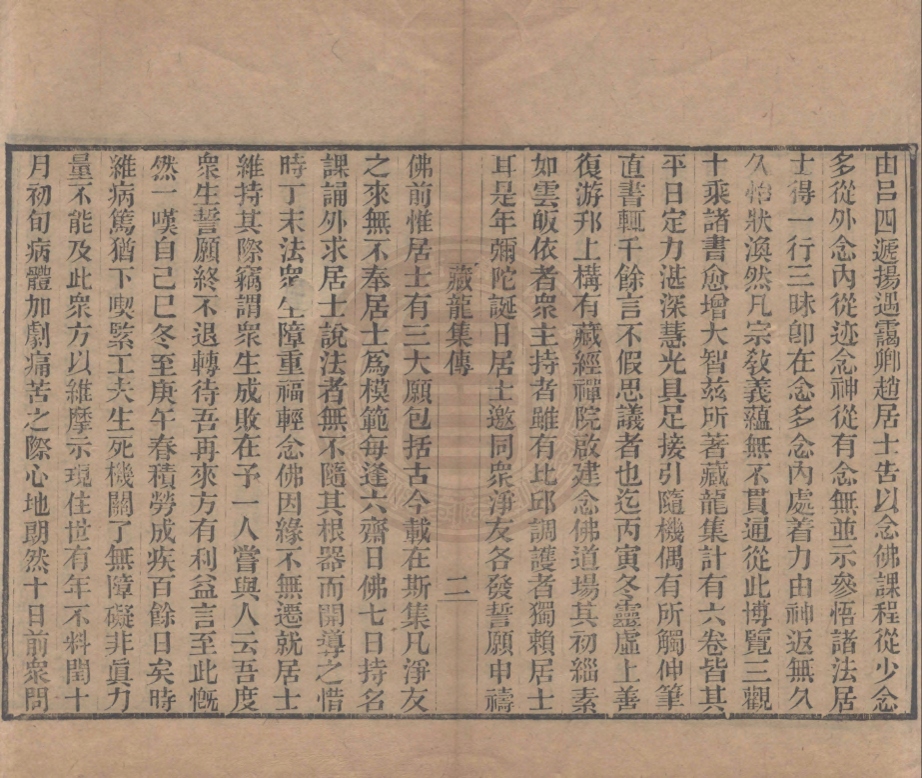 由呂四遞揚遇靄卿趙居士告以念佛課程從少念
多從外念內從迹念神從有念無並示參悟諸法居
士得一行三昧卽在念多念內處着力由神返無久
久怡狀渙然凡宗敎義蘊無不貫通從此博覽三觀
十乘諸書愈增大智茲所著藏龍集計有六卷皆其
平日定力湛深慧光具足接引隨機偶有所觸伸筆
直書輒千餘言不假思議者也迄丙寅冬靈虛上善
復游邗上構有藏經禪院啟建念佛道場其初緇素
如雲皈依者衆主持者雖有比邱調護者獨賴居士
耳是年彌陀誕日居士邀同衆淨友各發誓願申禱
藏龍集傳 二
佛前惟居士有三大願包括古今載在斯集凡淨友
之來無不奉居士爲模範每逢六齋日佛七日持名
課誦外求居士說法者無不隨其根器而開導之惜
時丁末法衆生障重福輕念佛因緣不無遷就居士
維持其際竊謂衆生成敗在予一人嘗與人云吾度
衆生誓願終不退轉待吾再來方有利益言至此慨
然一嘆自己巳冬至庚午春積勞成疾百餘日矣時
雖病篤猶下喫緊工夫生死機關了無障礙非眞力
量不能及此衆方以維摩示現住世有年不料閏十
月初旬病體加劇痛苦之際心地朗然十日前衆問